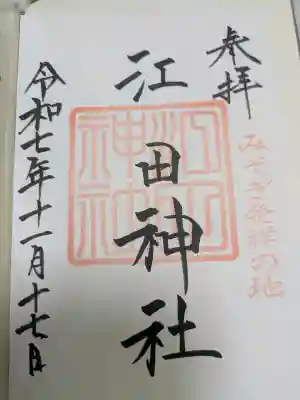 奉拝
みそぎ発祥の地
江田神社
江田神社
令和七年十一月十七日